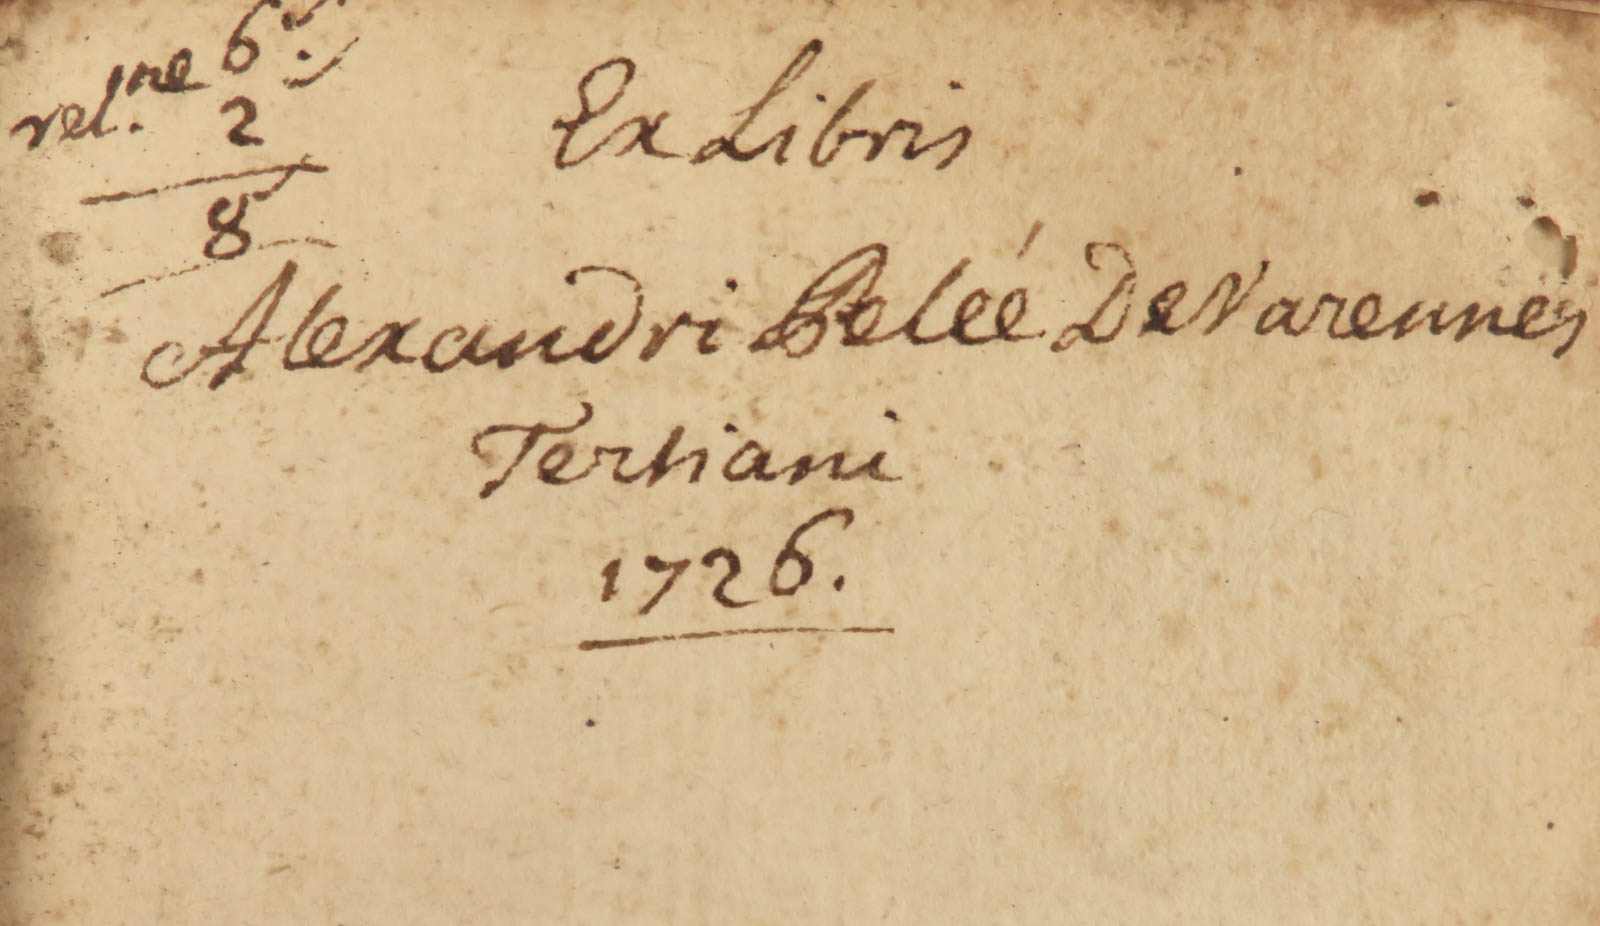 6
rel.re 2
8
Ex Libris
Alexandri Pelée De Varennes
Tertiani
1726.